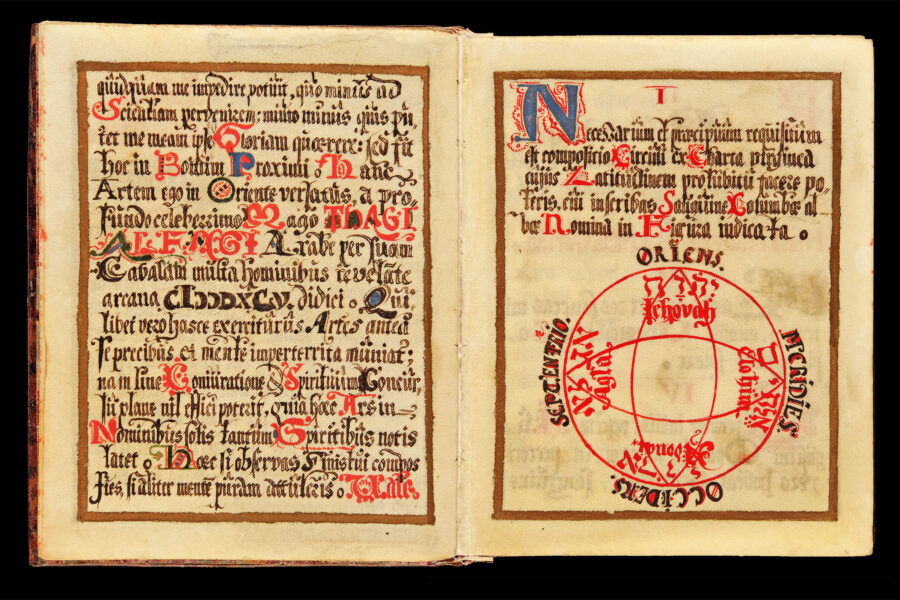 quidquam me impedire potuit, quo minus ad
Scientiam pervenirem; multo minus quis pu-
tet me meam ipse Gloriam quærere: sed
hoc in Bonum Proximi. Hanc
Artem ego in Oriente versatus, a pro-
fundo celeberrimo Mago THAGI
ALFAGI Arabe per suam
Cabalam multa hominibus revelate
arcana CIƆDXCV. didici. Qui
libet vero hasce exerciturus Artes antea
se precibus, & mente imperterrita muniat;
na in sine Coniuratione & Spirituum Concur,
su plane nil effici poterit, quia hæc Ars in
Nominibus solis tantum Spiritibus notis
latet. Hæc si observas Finis tui compos
fies, si aliter mente puram attuleris. Vale.
I
Necessarium et præcipuum requisitum
est compositio Circuli ex Charta
cujus Latitudinem pro libitu facere po-
teris, cui inscribas Sanguine Columbæ al-
bæ Nomina in Figura indicata.
ORIENS.
יהוה
Jehovah
SEPTENTRIO.
Agla.
MERIDIES.
Elohim.
Adonai
OCCIDENS.